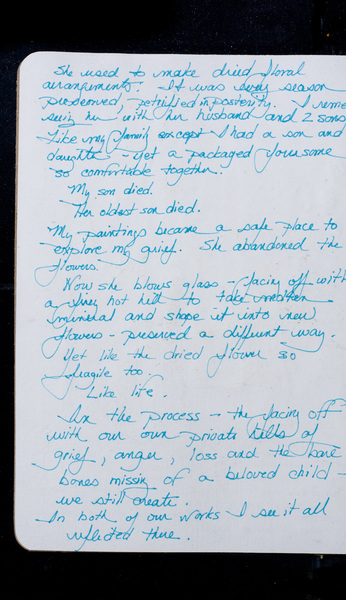 She used to make dried floral
arrangements. It was every season
preserved, petrified in posterity. I reme
seeing her with her husband and 2 sons
Like my family except I had a son and
daughter - Yet a packaged foursome
so comfortable together.
My son died.
Her oldest son died.
My paintings became a safe place to
explore my grief. She abandoned the
flowers.
Now she blows glass - facing off with
a fiery hot hell to take molten
mineral and shape it into new
flowers - preserved a different way.
Yet like the dried flower so
fragile too.
Like life.
In the process - the facing off
with our own private hells of
grief, anger, loss and the bare
bones missing of a beloved child -
we still create.
In both of our works I see it all
reflected there.